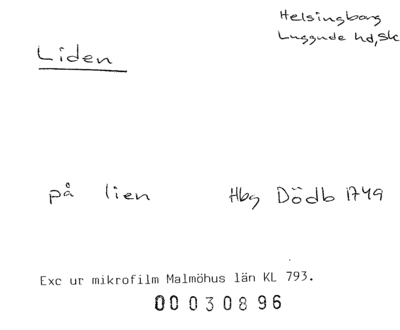 Helsingborg
Luggude hd, Sk
Liden
på lien Hbg Dödb 1749
Exc ur mikrofilm Malmöhus län KL 793.
00030896